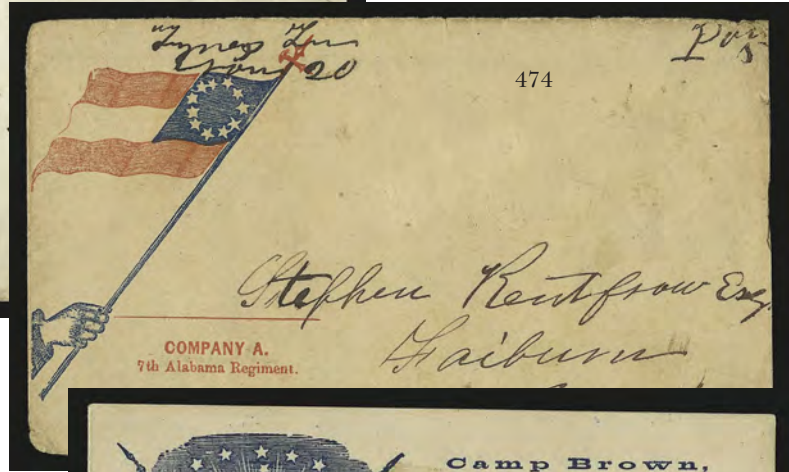 474
Stephen Rentfrow Esq
Faiburn
COMPANY A.
7th Alabama Regiment.
Camp Brown,